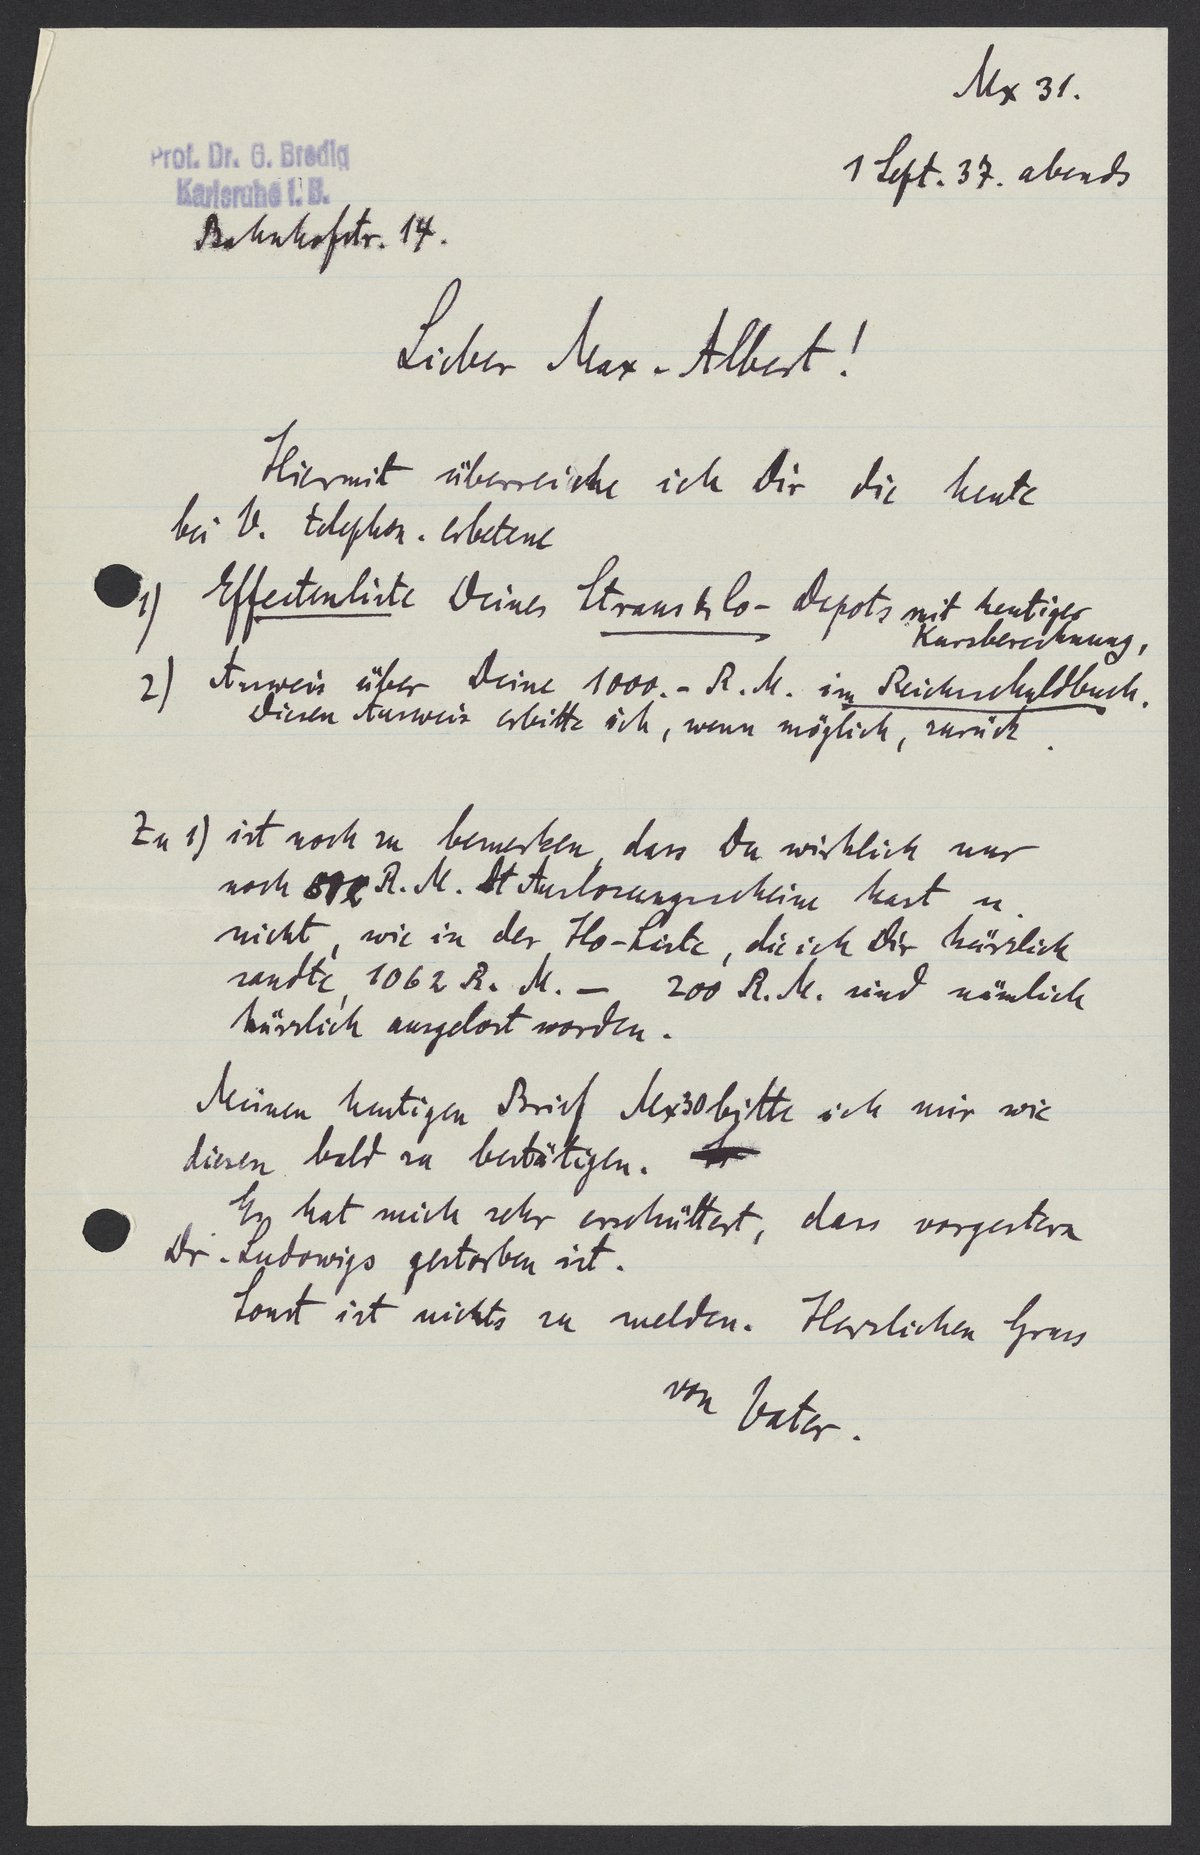 Mx 31.
Prof. Dr. G. Bredig
Karlsruhe i. B.
1 Sept. 37. abends
Bahnhofstr. 14.
Lieber Max-Albert!
Hiermit überreiche ich Dir die heute
bei V. telephon. erbetene
1) Effectenliste Deines Straus & Co- Depots mit heutiger
Kursberechnung,
2) Ausweis über Deine 1000.- R.M. im Reichsschuldbuch.
Diesen Ausweis erbitte ich, wenn möglich, zurück.
Zu 1) ist noch zu bemerken, dass Du wirklich nur
noch R.M. Auslosungsscheine hast u.
nicht, wie in der Ho-Liste, die ich Dir kürzlich
sandte, 1062 R. M. — 200 R.M. sind nämlich
kürzlich ausgelost worden.
Meinen heutigen Brief Mx30 bitte ich mir wie
diesen bald zu bestätigen.
Es hat mich sehr erschüttert, dass vorgestern
Dr. Ludowigs gestorben ist.
Sonst ist nichts zu melden. Herzlichen Gruss
von Vater.